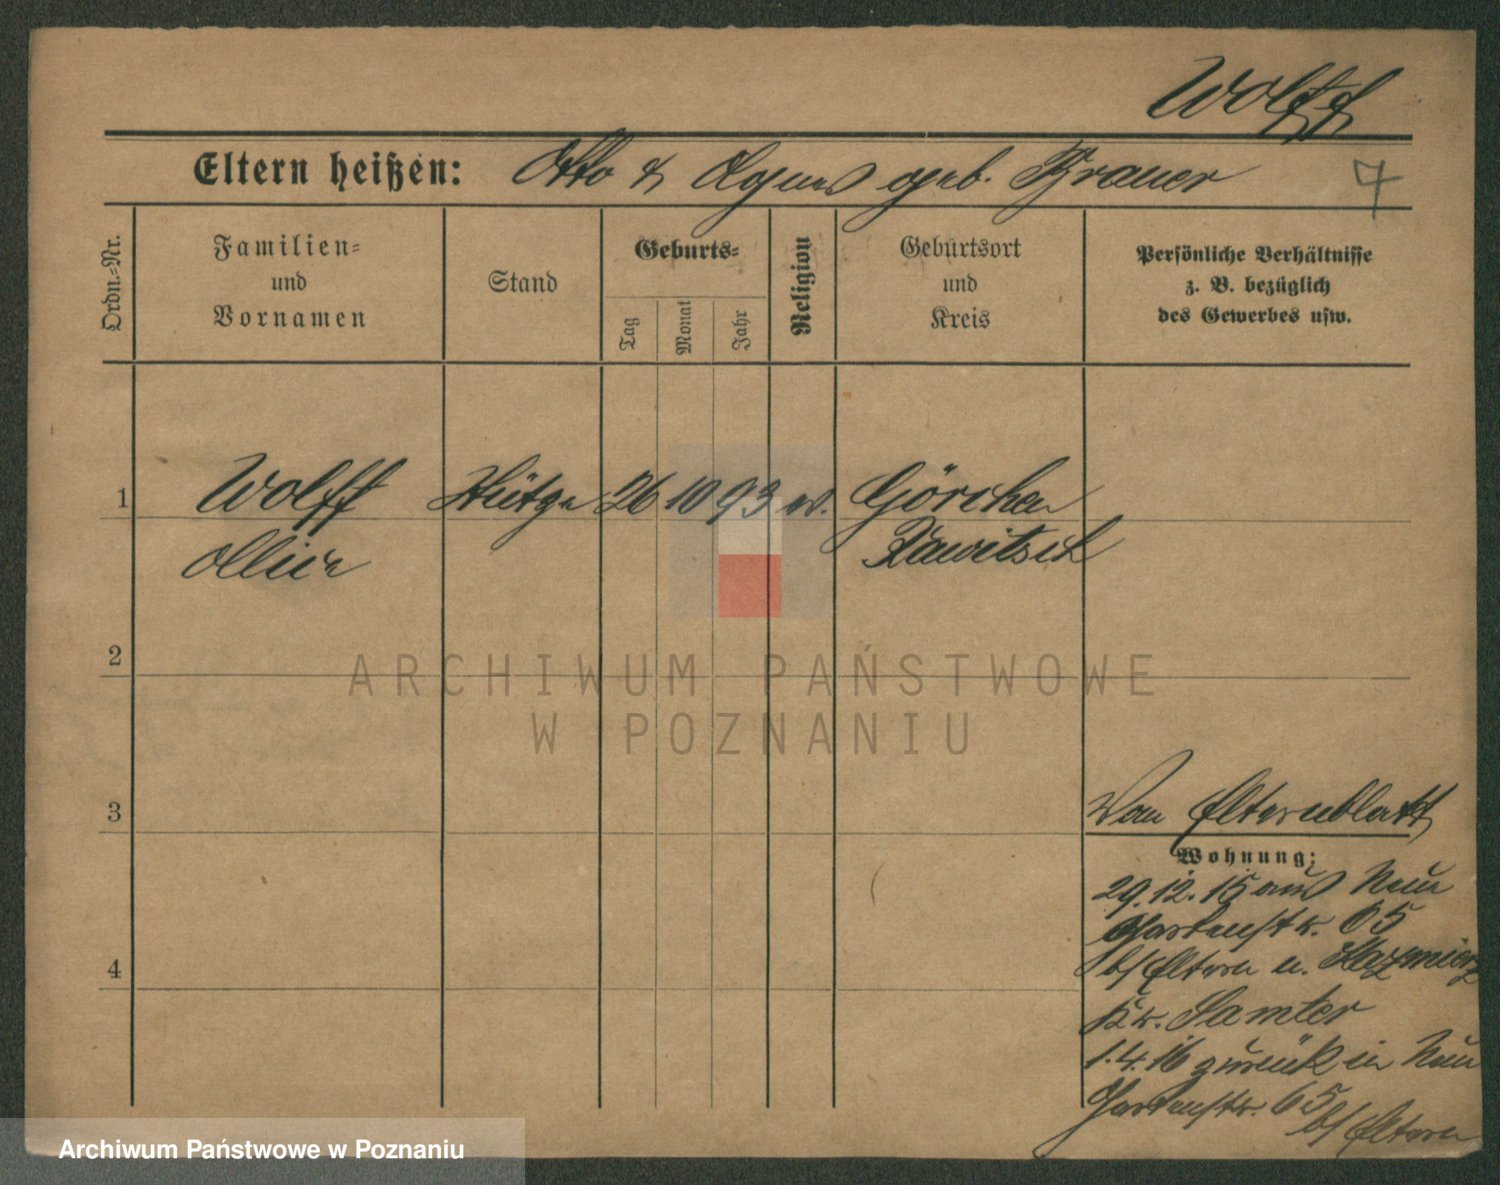 Wolff
Eltern heißen: Otto & Agnes geb. Brauer
7
Ordn.=Nr.
Familien=
und
Vornamen
Stand
Geburts=
Tag
Monat
Jahr
Religion
Geburtsort
und
Kreis
Persönliche Verhältnisse
z. B. bezüglich
des Gewerbes usw.
1
Wolff
26 10 93
Görchen
Rawitsch
2
ARCHIWUM PAŃSTWOWE
W POZNANIU
3
Vom Elternblatt
Wohnung:
29.12.15 aus Neue
Gartenstr. 65
b/ Eltern n. Kazmierz
Kr. Samter
4
1.4.16 zurück in Neue
Gartenstr. 65
b/ Eltern
Archiwum Państwowe w Poznaniu